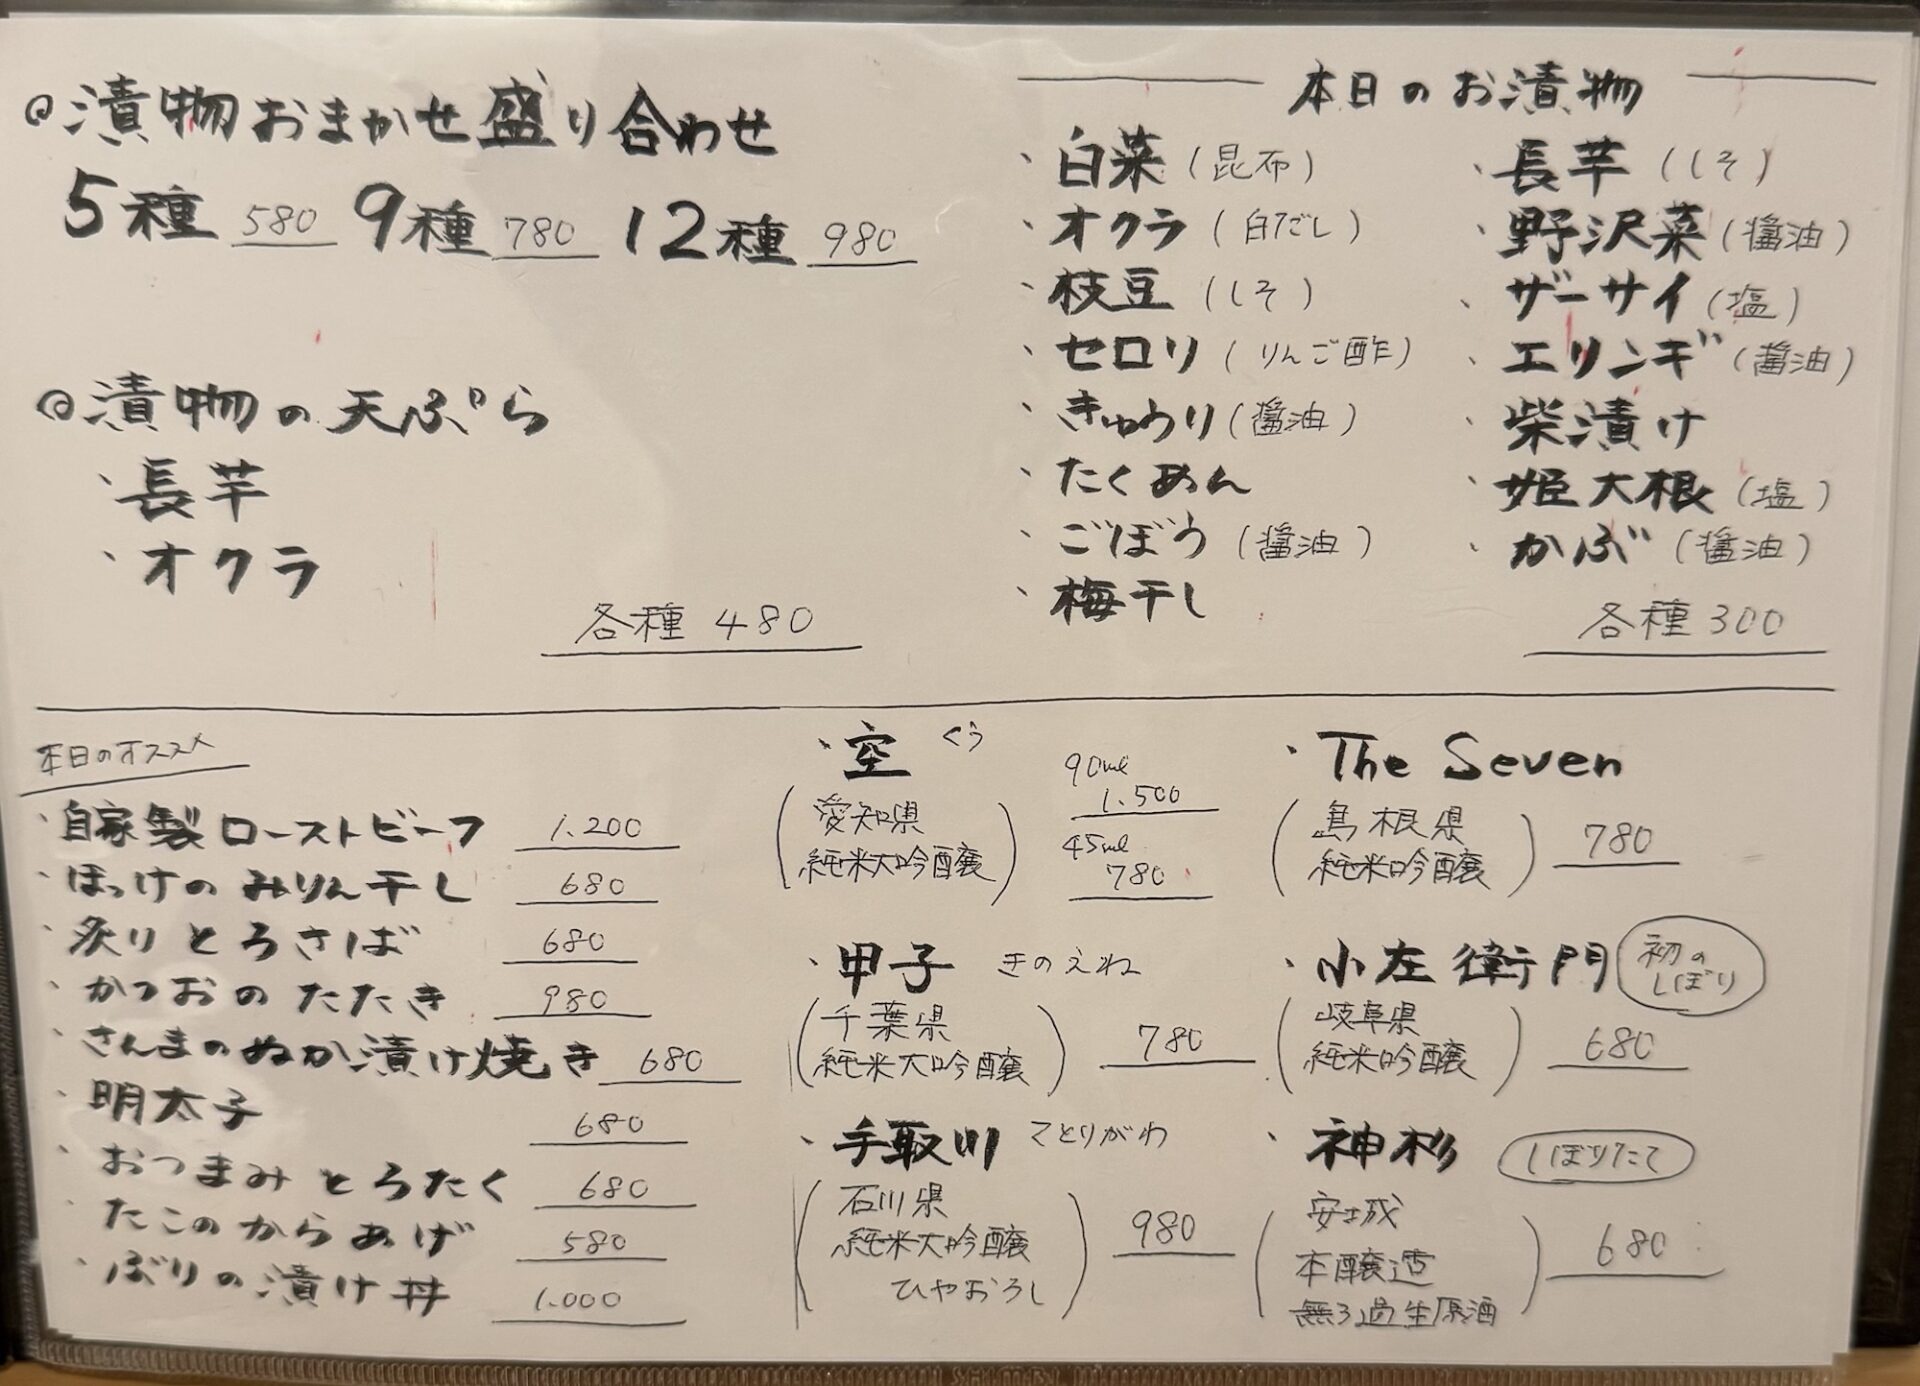 ◎漬物おまかせ盛り合わせ
5種 580 9種 780 12種 980
◎漬物の天ぷら
・長芋
・オクラ
各種 480
本日のお漬物
・白菜(昆布)
・オクラ(白だし)
・枝豆(しそ)
・セロリ(りんご酢)
・きゅうり(醤油)
・たくあん
・ごぼう(醤油)
・梅干し
・長芋(しそ)
・野沢菜(醤油)
・ザーサイ(塩)
・エリンギ(醤油)
・柴漬け
・姫大根(塩)
・かぶ(醤油)
各種 300
本日のオススメ
・自家製ローストビーフ 1.200
・ほっけのみりん干し 680
・炙りとろさば 680
・かつおのたたき 980
・さんまのぬか漬け焼き 680
・明太子 680
・おつまみとろたく 680
・たこのからあげ 580
・ぶりの漬け丼 1.000
・空 くう
(愛知県
純米大吟醸)
90ml
1.500
45ml
780
・甲子 きのえね
(千葉県
純米大吟醸) 780
・手取川 てとりがわ
(石川県
純米大吟醸
ひやおろし) 980
・The Seven
(島根県
純米吟醸) 780
・小左衛門 初のしぼり
(岐阜県
純米吟醸) 680
・神杉 しぼりたて
(安城
本醸造
無ろ過生原酒) 680